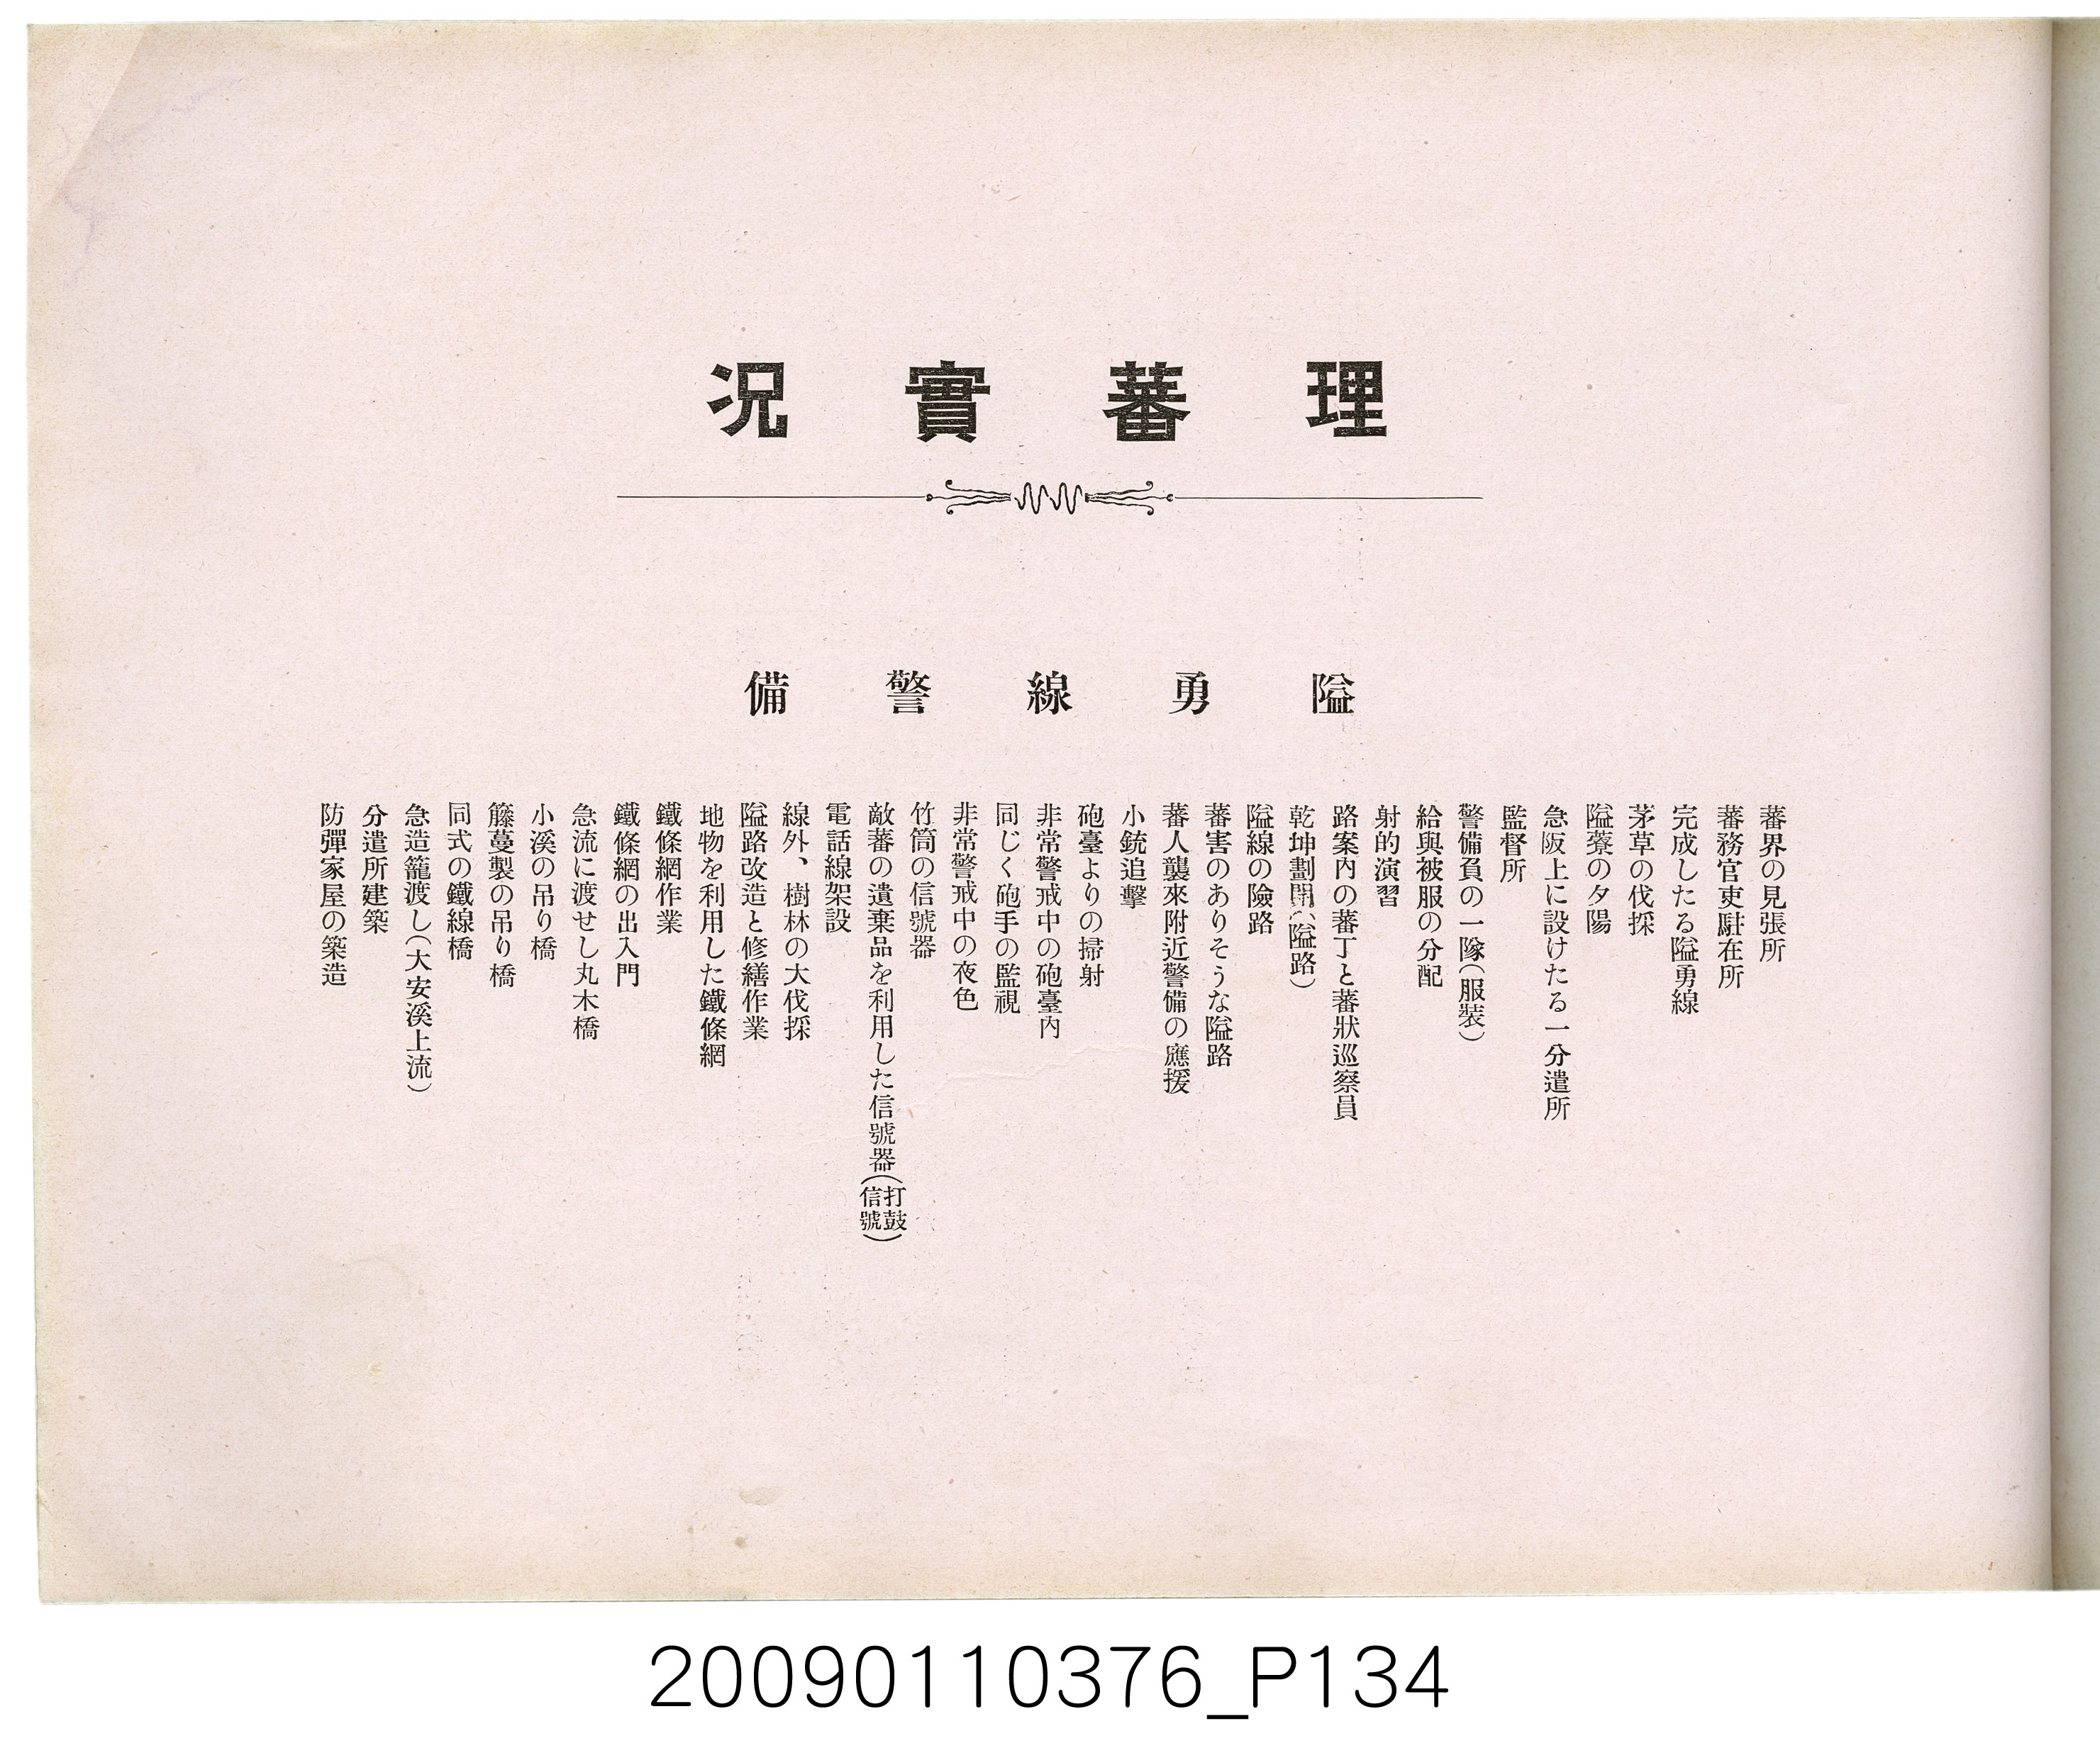 理蕃實況
隘勇線警備
蕃界の見張所
蕃務官吏駐在所
完成したる隘勇線
茅草の伐採
隘藔の夕陽
急阪上に設けたる一分遣所
監督所
警備員の一隊(服裝)
給與被服の分配
射的演習
路案內の蕃丁と蕃狀巡察員
乾坤劃開(隘路)
隘線の險路
蕃害のありそうな隘路
蕃人襲來附近警備の應援
小銃追擊
砲臺よりの掃射
非常警戒中の砲臺內
同じく砲手の監視
非常警戒中の夜色
竹筒の信號器
敵蕃の遺棄品を利用した信號器(打鼓信號)
電話線架設
線外、樹林の大伐採
隘路改造と修繕作業
地物を利用した鐵條網
鐵條網作業
鐵條網の出入門
急流に渡せし丸木橋
小溪の吊り橋
籐蔓製の吊り橋
同式の鐵線橋
急造籠渡し(大安溪上流)
分遣所建築
防彈家屋の築造
20090110376_P134